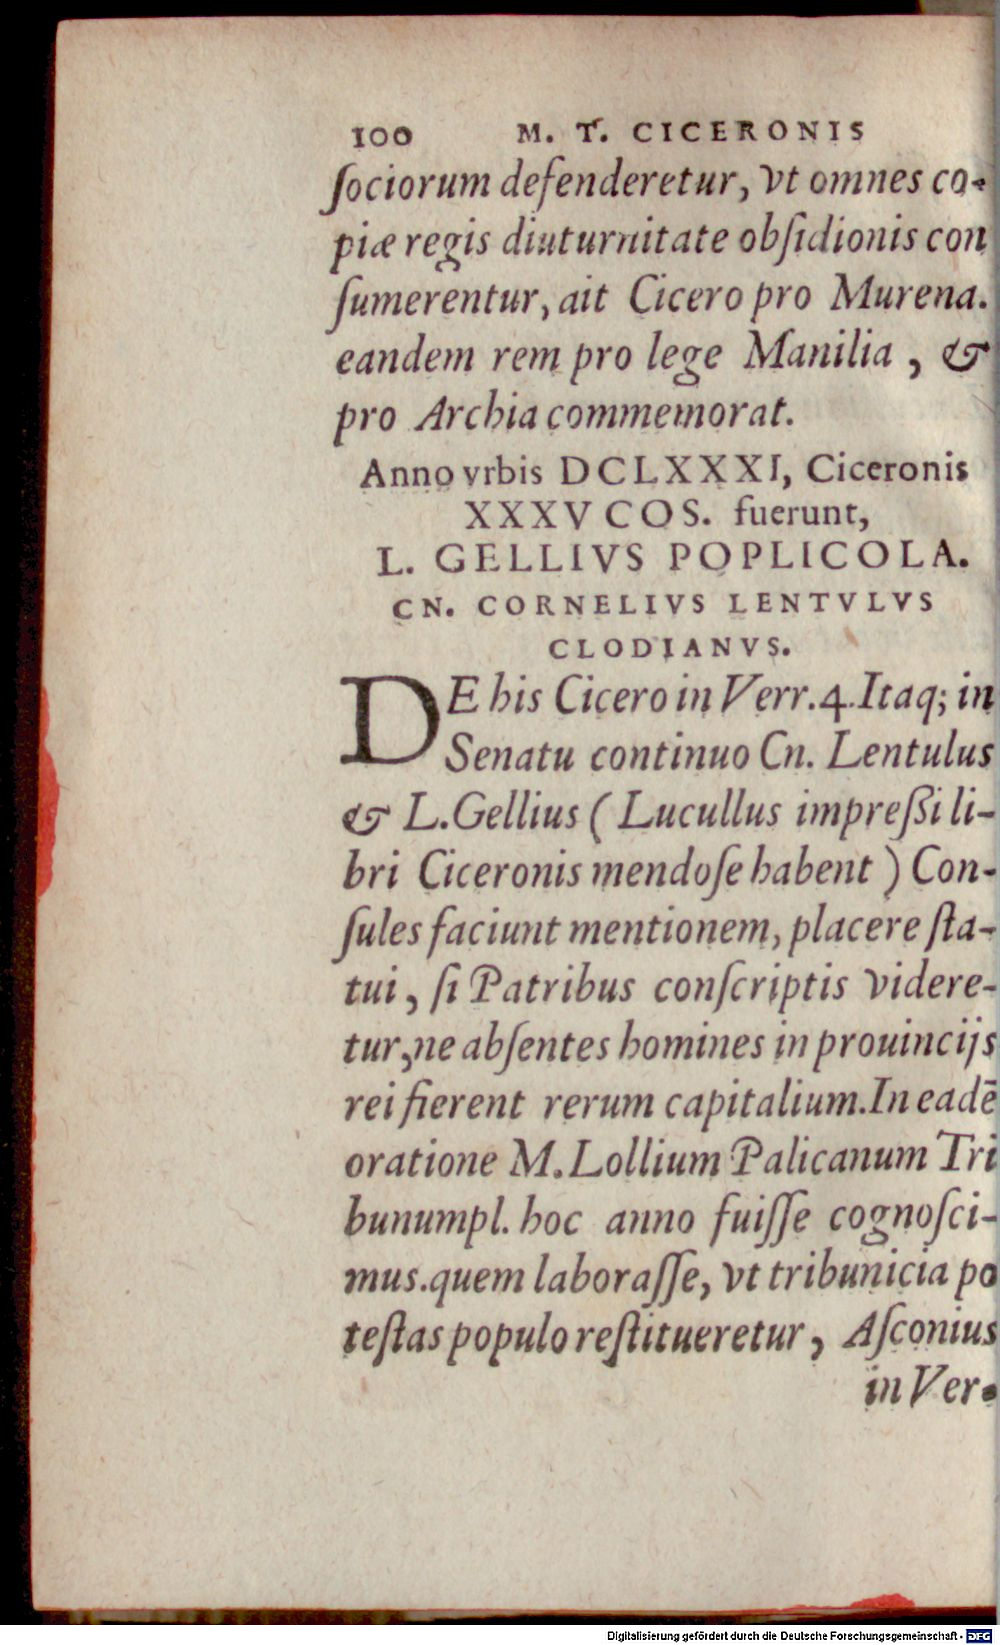 100 M. T. CICERONIS
ſociorum defenderetur, vt omnes co-
piæ regis diuturnitate obſidionis con
ſumerentur, ait Cicero pro Murena.
eandem rem pro lege Manilia, &
pro Archia commemorat.
Anno vrbis DCLXXXI, Ciceronis
XXXV COS. fuerunt,
L. GELLIVS POPLICOLA.
CN. CORNELIVS LENTVLVS
CLODIANVS.
DE his Cicero in Verr. 4. Itaq; in
Senatu continuo Cn. Lentulus
& L. Gellius ( Lucullus impreßi li-
bri Ciceronis mendoſe habent ) Con-
ſules faciunt mentionem, placere ſta-
tui, ſi Patribus conſcriptis videre-
tur, ne abſentes homines in prouincijs
rei fierent rerum capitalium. In eadē
oratione M. Lollium Palicanum Tri
bunumpl. hoc anno fuiſſe cognoſci-
mus. quem laboraſſe, vt tribunicia po
teſtas populo reſtitueretur, Aſconius
in Ver-
Digitalisierung gefördert durch die Deutsche Forschungsgemeinschaft - DFG